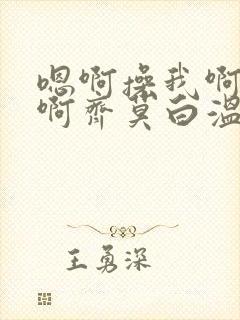 嗯啊操我啊
啊齐莫白温
王勇深